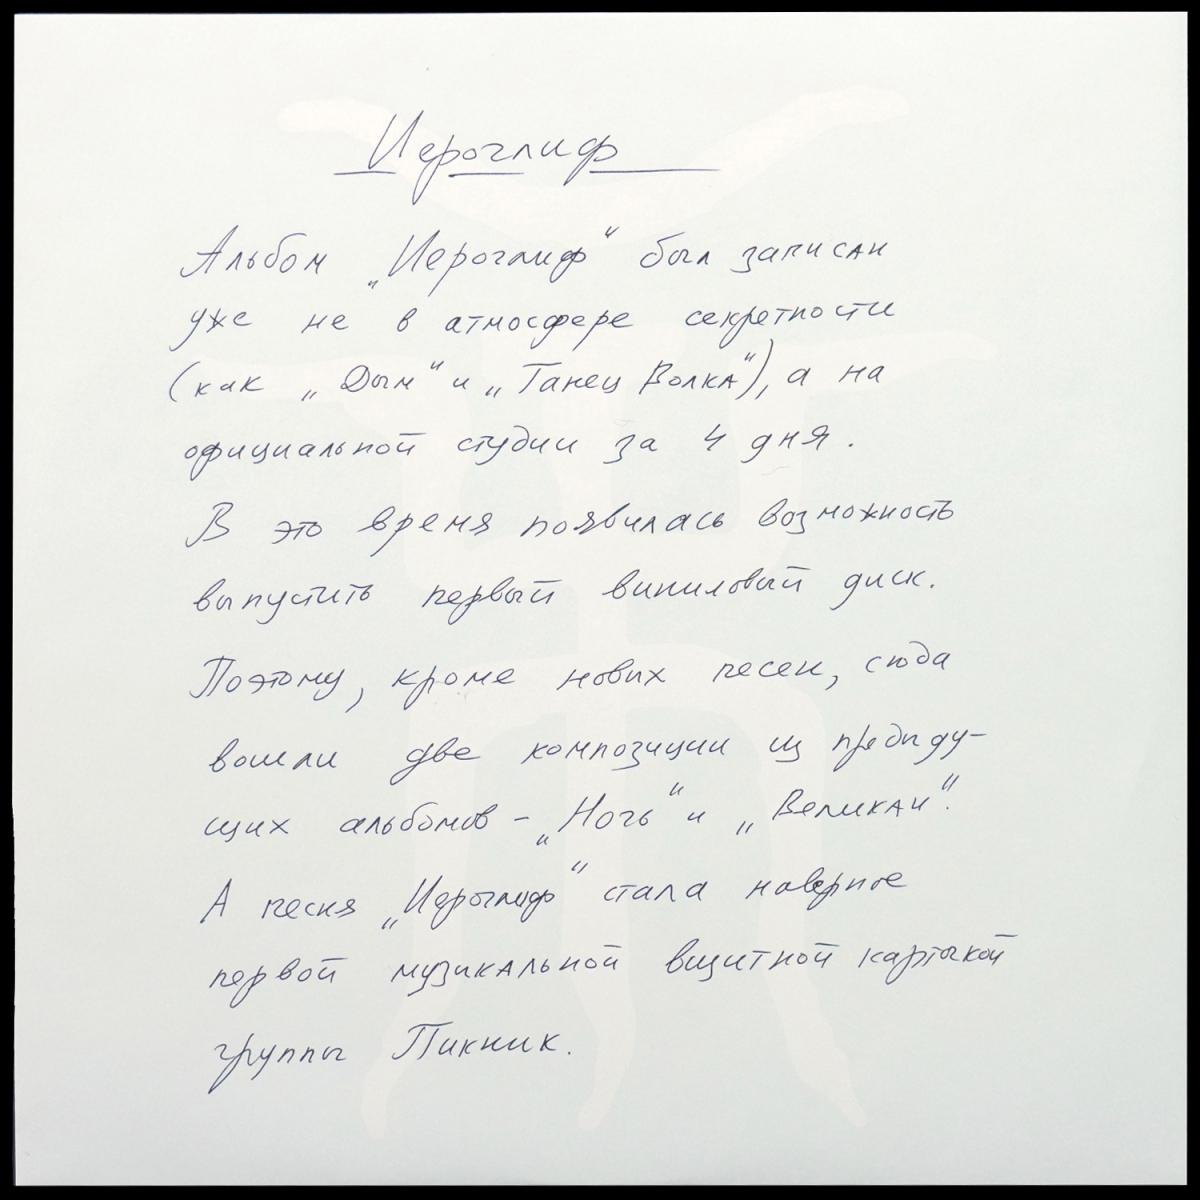 Иероглиф
Альбом „Иероглиф“ был записан
уже не в атмосфере секретности
(как „Дым“ и „Танец Волка“), а на
официальной студии за 4 дня.
В это время появилась возможность
выпустить первый виниловый диск.
Поэтому, кроме новых песен, сюда
вошли две композиции из предыду-
щих альбомов – „Ночь“ и „Великан“.
А песня „Иероглиф“ стала наверное
первой музыкальной визитной карточкой
группы Пикник.